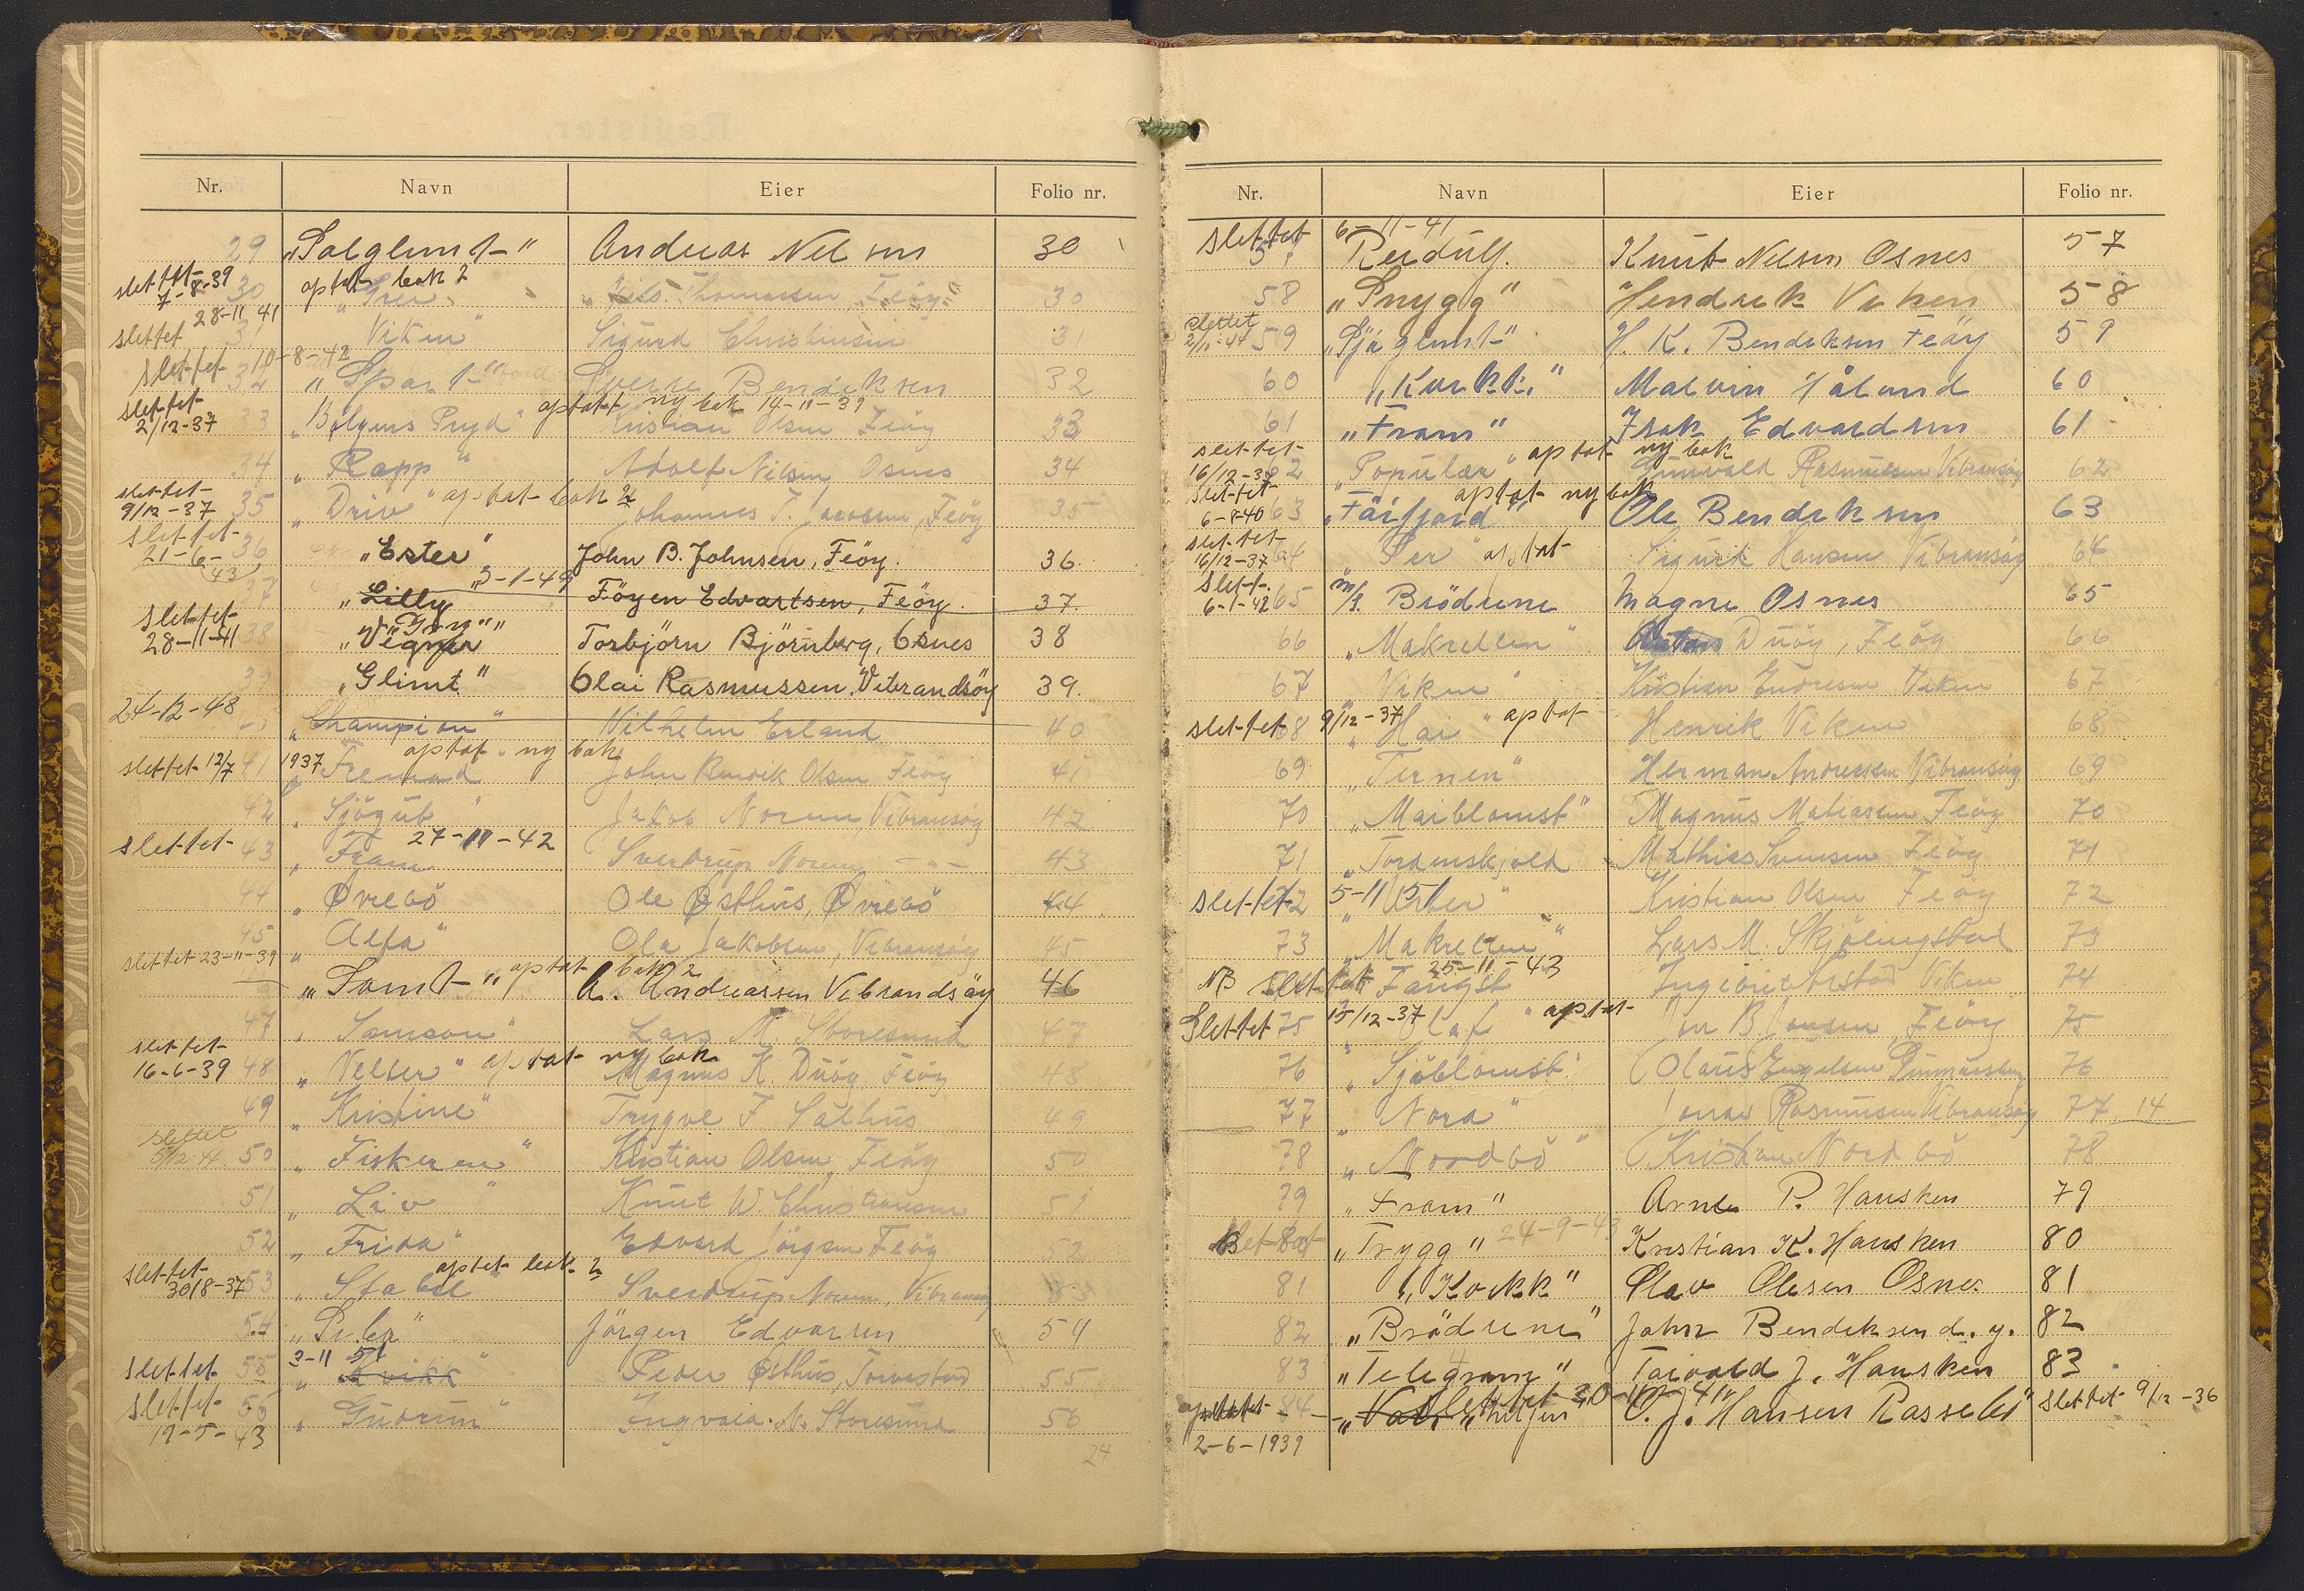 Nr. Navn Eier Folio nr.
29 "Solglimt" Andreas Nilsen 30
slettet 7-8-39 30 optat bok 2 Nils Thomassen, Feöy 30
slettet 28-11 41 31 "Viken" Sigurd Christensen 31
slettet 10-8-42 32 "Spart" Sverre Bendiksen 32
slettet 2/12-37 33 "Bölgens Pryd" optatt ny bok 14-11-39 Kristian Olsen Feöy 33
34 "Rapp" Adolf Nilsen Osnes 34
slettet 9/12-37 35 "Driv" optat bok 2 Johannes T. Feöy 35
slettet 21-6-43 36 "Ester" John B. Johnsen, Feöy. 36.
37 "Lilly" 3-1-49 Föyen Edvartsen, Feöy. 37.
slettet 28-11-41 38 Torbjörn Björnberg, Osnes 38
39 "Glimt" Olai Rasmussen, Vibrandsöy 39.
24-12-48 40 "Champion" Vilhelm Erland 40
slettet 12/7 1937 41 "Fremad" optat ny bok John Olsen Feöy 41
42 "Sjögut" Jakob Norum, Vibransöy 42
slettet 27-11-42 43 "Fram" Sverdrup Norum -"- 43
44 "Øvrebö Ole Østhus, Øvrebö 44
45 "Alfa" Ola Jakobsen, Vibransöy 45
slettet 23-11-39 "Somt" optat bok 2 A. Andreassen Vibrandsöy 46
47 "Samson" Lars M Storesund 47
slettet 16-6-39 48 "Velter" optat ny bok Magnus K. Duöy Feöy 48
49 "Kristine" Trygve F Salhus 49
slettet 50 "Fiskeren" Kristian Olsen, Feöy 50
51 "Liv" Knut W. Christiansen 51
52 "Frida" Edvard Jörgensen Feöy 52
slettet 30/8-37 53 "Stabil" optat bok 2 Sverdrup Norum, Vibransöy 53
54 Jörgen Edvarsen 54
slettet 3-11 51 55 "Kvikk" Peder Østhus, Torvastad 55
slettet 19-5-43 56 "Gudrun" Ingvald M. Storesund 56
24
Nr. Navn Eier Folio nr.
slettet 6-11-41 57 Knut Nilsen Osnes 57
58 "Snygg" Hendrik Viken 58
slettet 2/11-44 59 "Sjöglimt" H. K. Bendiksen Feöy 59
60 Malvin Håland 60
61 "Fram" Isak Edvardsen 61
slettet 16/12-37 62 "Populær" optat ny bok Gunvald Rasmussen Vibransöy 62
slettet 6-8-40 63 optat ny bok Ole Bendiksen 63
slettet 16/12-37 64 "Per" optat Sigurd Hansen Vibransöy 64
Slett. 6-1-42 65 m/s. Brödrene Magne Osnes 65
66 "Makrellen" Duöy, Feöy 66
67 "Viken" Kristian Endresen Viken 67
slettet 9/12-37 68 "Hai" optat Henrik Viken 68
69 "Ternen" Herman Andreassen Vibransöy 69
70 "Maiblomst" Magnus Matiassen Feöy 70
71 "Tordenskjold Mathias Svensen Feöy 71
slettet 5-11 51 72 Kristian Olsen Feöy 72
73 "Makrellen" Lars M. Skjölingstad 73
NB slettet 25-11-43 Fangst Viken 74
Slettet 13/12-37 75 "Olaf" optat B. Jonsen, Feöy 75
76 "Sjöblomst" Olaus Engelsen 76
77 "Nora" Rasmussen Vibransöy 77 14
78 "Nordbö" Kristian Nordbö 78
79 "Fram" Arne P. Hausken 79
Slettet 80 "Trygg" 24-9-43 Kristian K. Hausken 80
81 Olav Olesen Osnes 81
82 "Brödrene" John Bendiksen d. y. 82
83 "Telegram" Torvald J. Hausken 83
optatt 84 slettet 30 41 O. J. Hansen slettet 9/12-36
2-6-1939